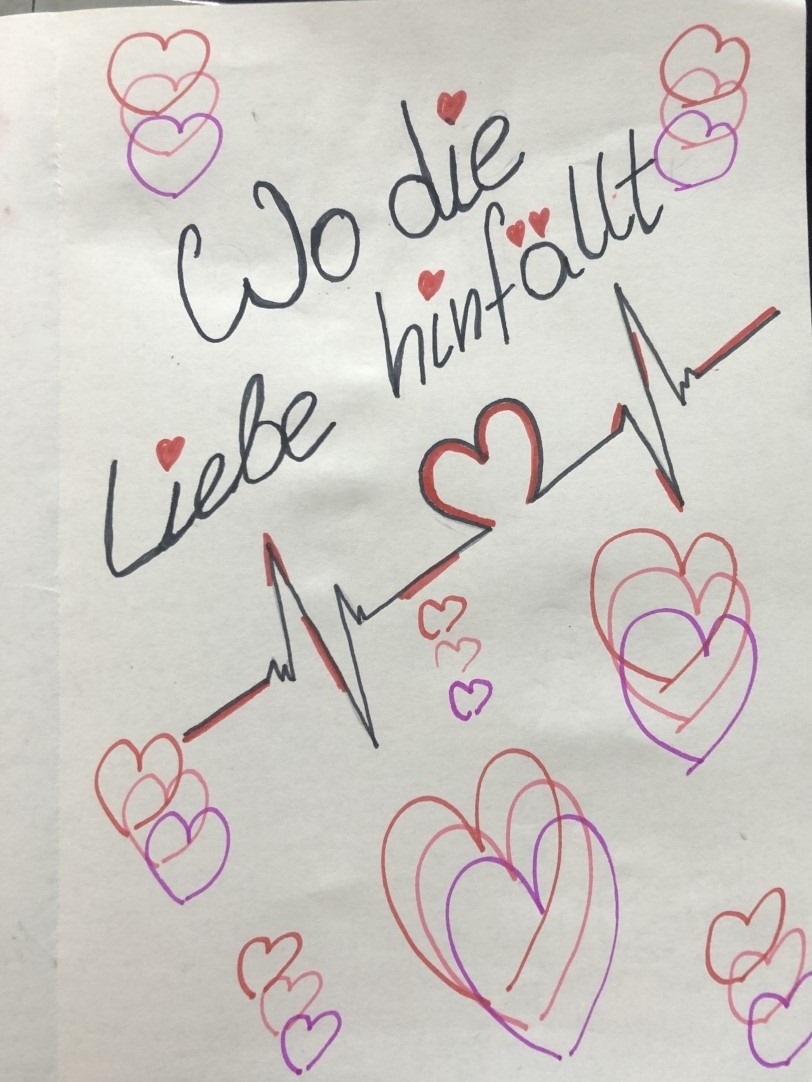 Wo die
Liebe hinfällt